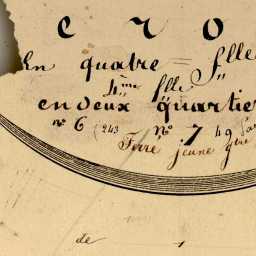 c r o
En quatre = f^lles
4^ème f^lle
en deux quartie
n° 6 (243 N° 7 49
Terre jeune
de 1